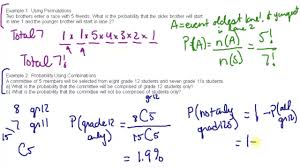 Example 1: Using Permutations
Two brothers enter a race with 5 friends. What is the probability that the older brother will start
in lane 1 and the younger brother will start in lane 2?
A = event oldest lane 1 & youngest lane 2
1 x 1 x 5 x 4 x 3 x 2 x 1
Total 7!
P(A) = n(A) / n(S) = 5! / 7!
Example 2: Probability Using Combinations
A committee of 5 members will be selected from eight grade 12 students and seven grade 11s students.
What is the probability that the committee will be comprised of only grade 12 students?
What is the probability that the committee will not be comprised of only
8 gr12
7 gr11
15
C5
P(grade 12 only) = 8C5 / 15C5
= 1.9%
P(not only grade 12s) = 1 - P(all gr12)
= 1 -